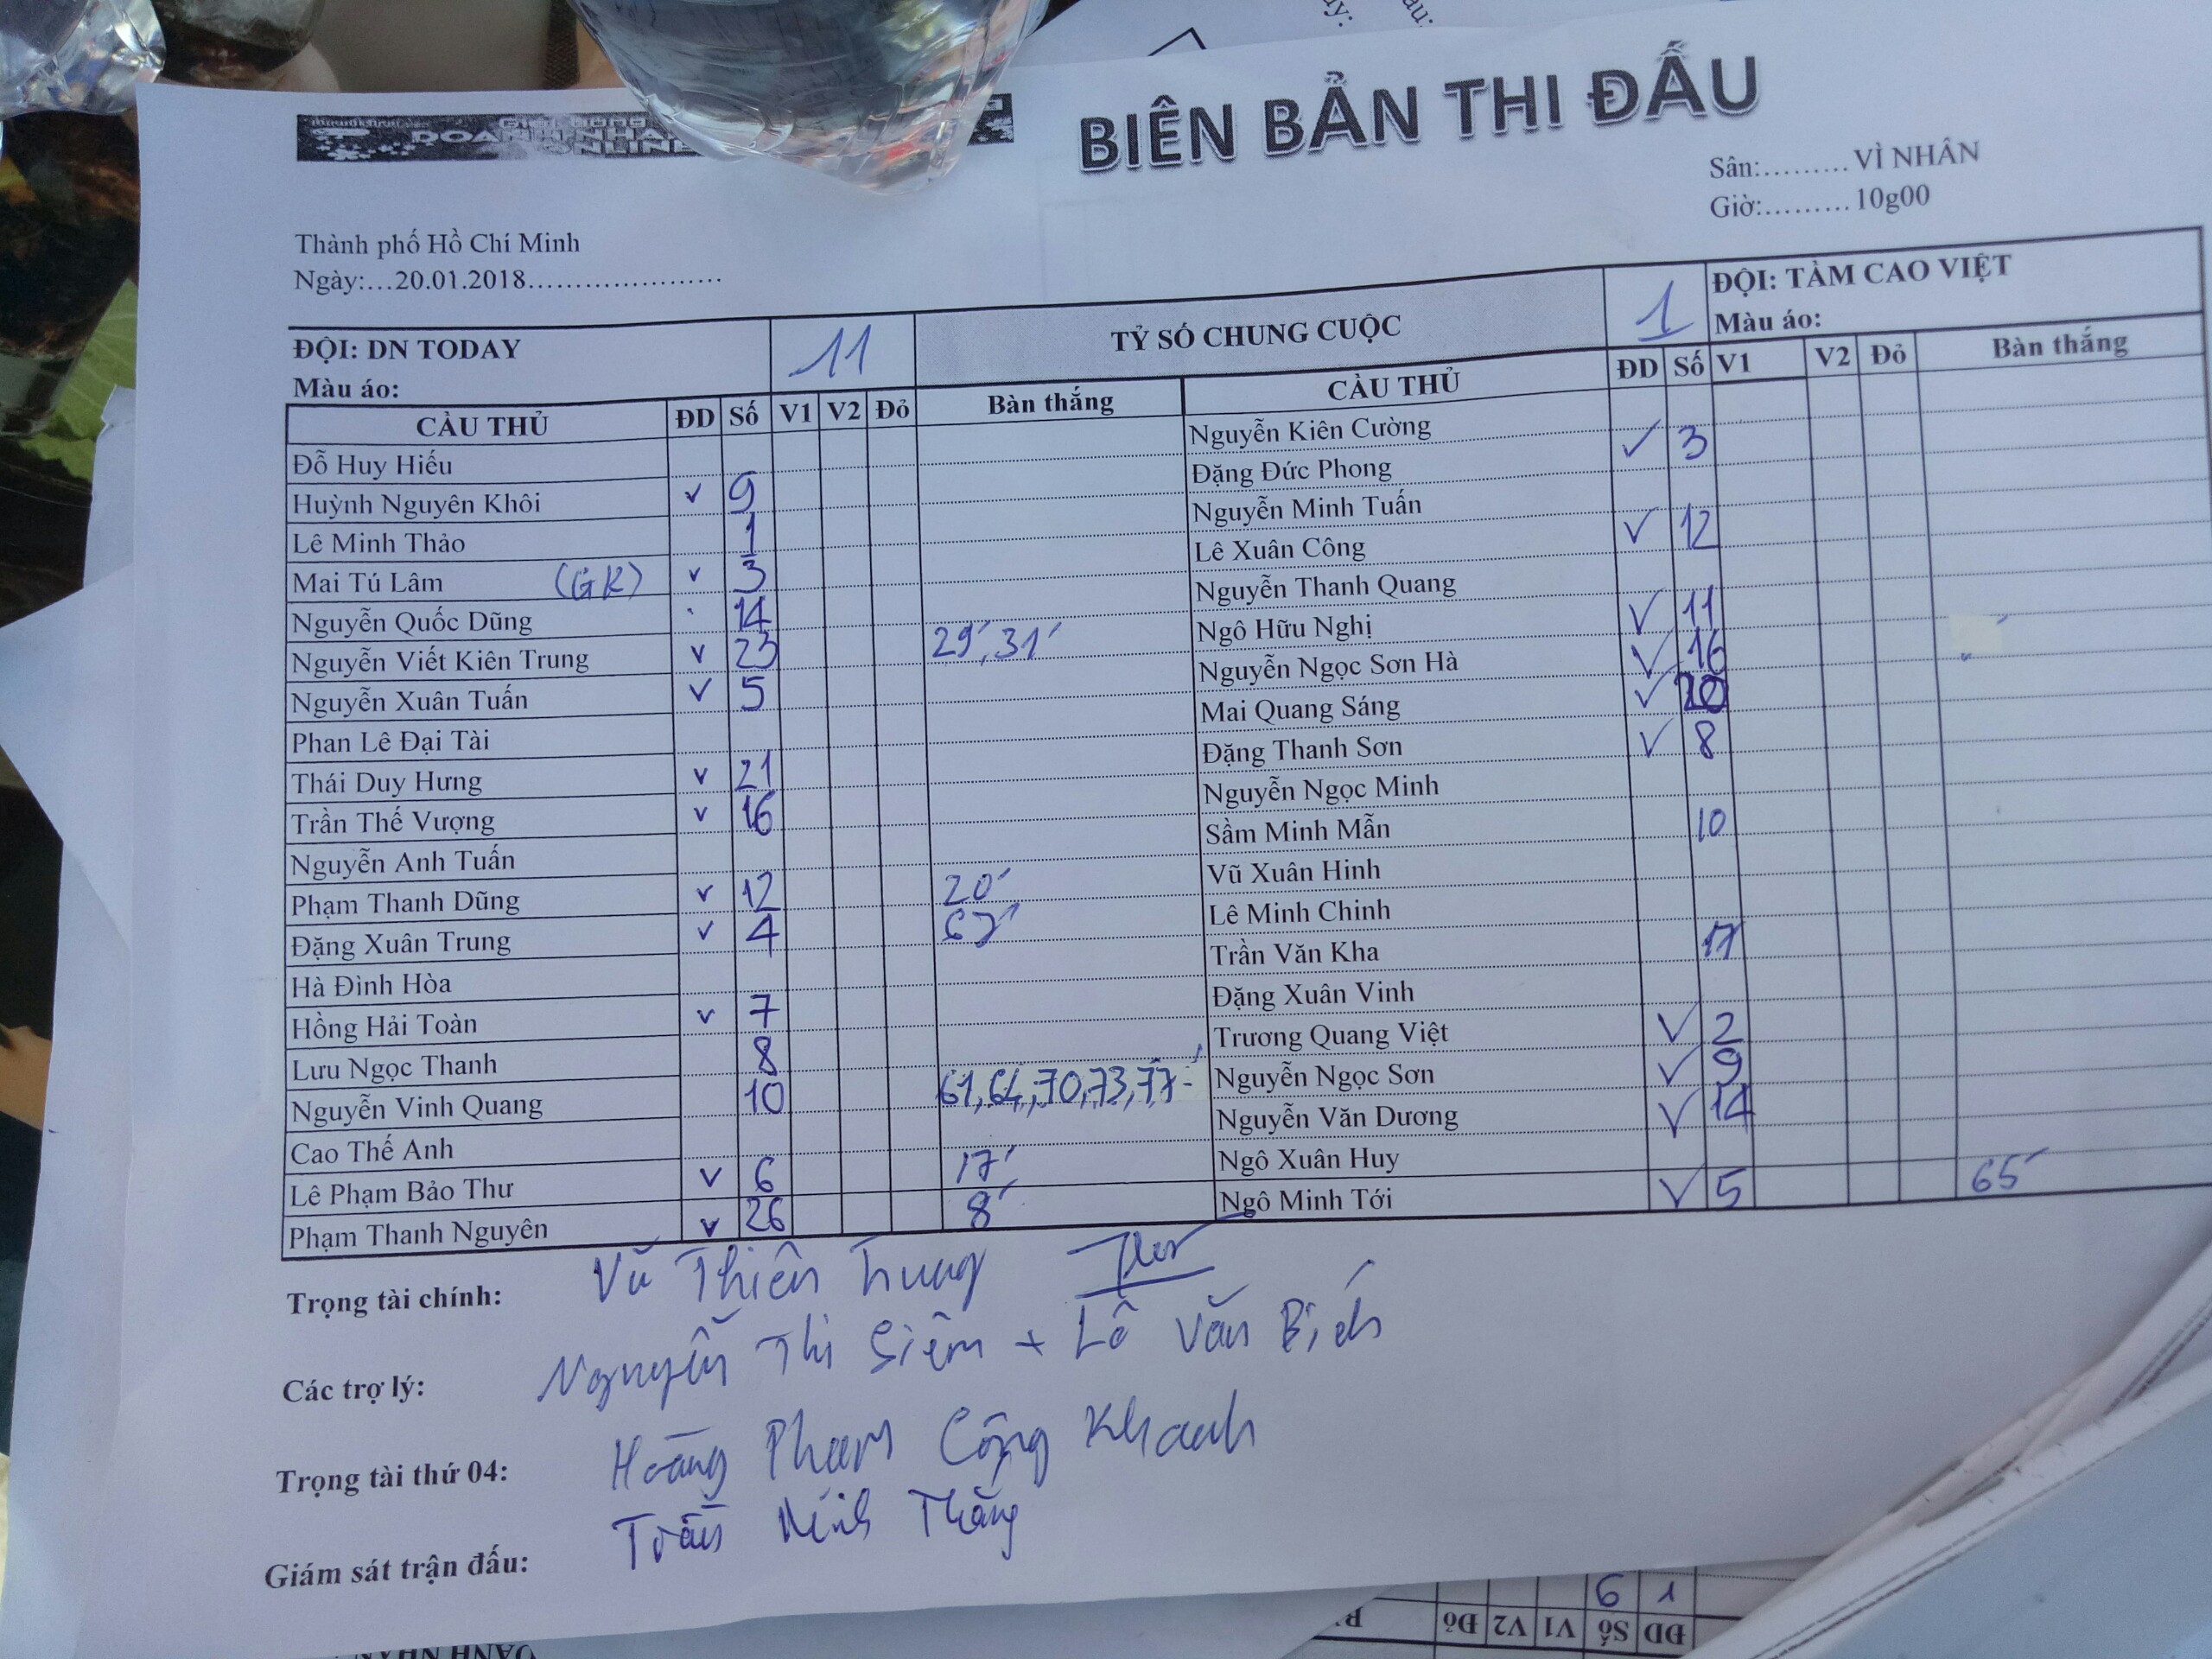 BIÊN BẢN THI ĐẤU
DOANH NHÂN
ONLINE
Sân:......... VÌ NHÂN
Giờ:......... 10g00
Thành phố Hồ Chí Minh
Ngày:...20.01.2018......................
ĐỘI: DN TODAY 11 TỶ SỐ CHUNG CUỘC 1 ĐỘI: TẦM CAO VIỆT
Màu áo: Màu áo:
CẦU THỦ ĐD Số V1 V2 Đỏ Bàn thắng CẦU THỦ ĐD Số V1 V2 Đỏ Bàn thắng
Đỗ Huy Hiếu Nguyễn Kiên Cường ✓ 3
Huỳnh Nguyên Khôi v 9 Đặng Đức Phong
Lê Minh Thảo 1 Nguyễn Minh Tuấn ✓ 12
Mai Tú Lâm (GK) v 3 Lê Xuân Công
Nguyễn Quốc Dũng 14 Nguyễn Thanh Quang ✓ 11
Nguyễn Viết Kiên Trung v 23 29', 31' Ngô Hữu Nghị ✓ 16
Nguyễn Xuân Tuấn v 5 Nguyễn Ngọc Sơn Hà ✓ 20
Phan Lê Đại Tài Mai Quang Sáng ✓ 8
Thái Duy Hưng v 21 Đặng Thanh Sơn
Trần Thế Vượng v 16 Nguyễn Ngọc Minh 10
Nguyễn Anh Tuấn Sầm Minh Mẫn
Phạm Thanh Dũng v 12 20' Vũ Xuân Hinh
Đặng Xuân Trung v 4 Lê Minh Chinh 17
Hà Đình Hòa Trần Văn Kha
Hồng Hải Toàn v 7 Đặng Xuân Vinh
Lưu Ngọc Thanh 8 Trương Quang Việt ✓ 2
Nguyễn Vinh Quang 10 61, 64, 70, 73, 77' Nguyễn Ngọc Sơn ✓ 9
Cao Thế Anh Nguyễn Văn Dương ✓ 14
Lê Phạm Bảo Thư v 6 17' Ngô Xuân Huy
Phạm Thanh Nguyên v 26 8' Ngô Minh Tới ✓ 5 65'
Trọng tài chính: Vũ Thiên Trung
Các trợ lý: Nguyễn Thi Siêm + Lê Văn Biến
Trọng tài thứ 04: Hoàng Phạm Công Khanh
Giám sát trận đấu: Trần Minh Thắng
6 1
Đỏ V2 V1 Số ĐD